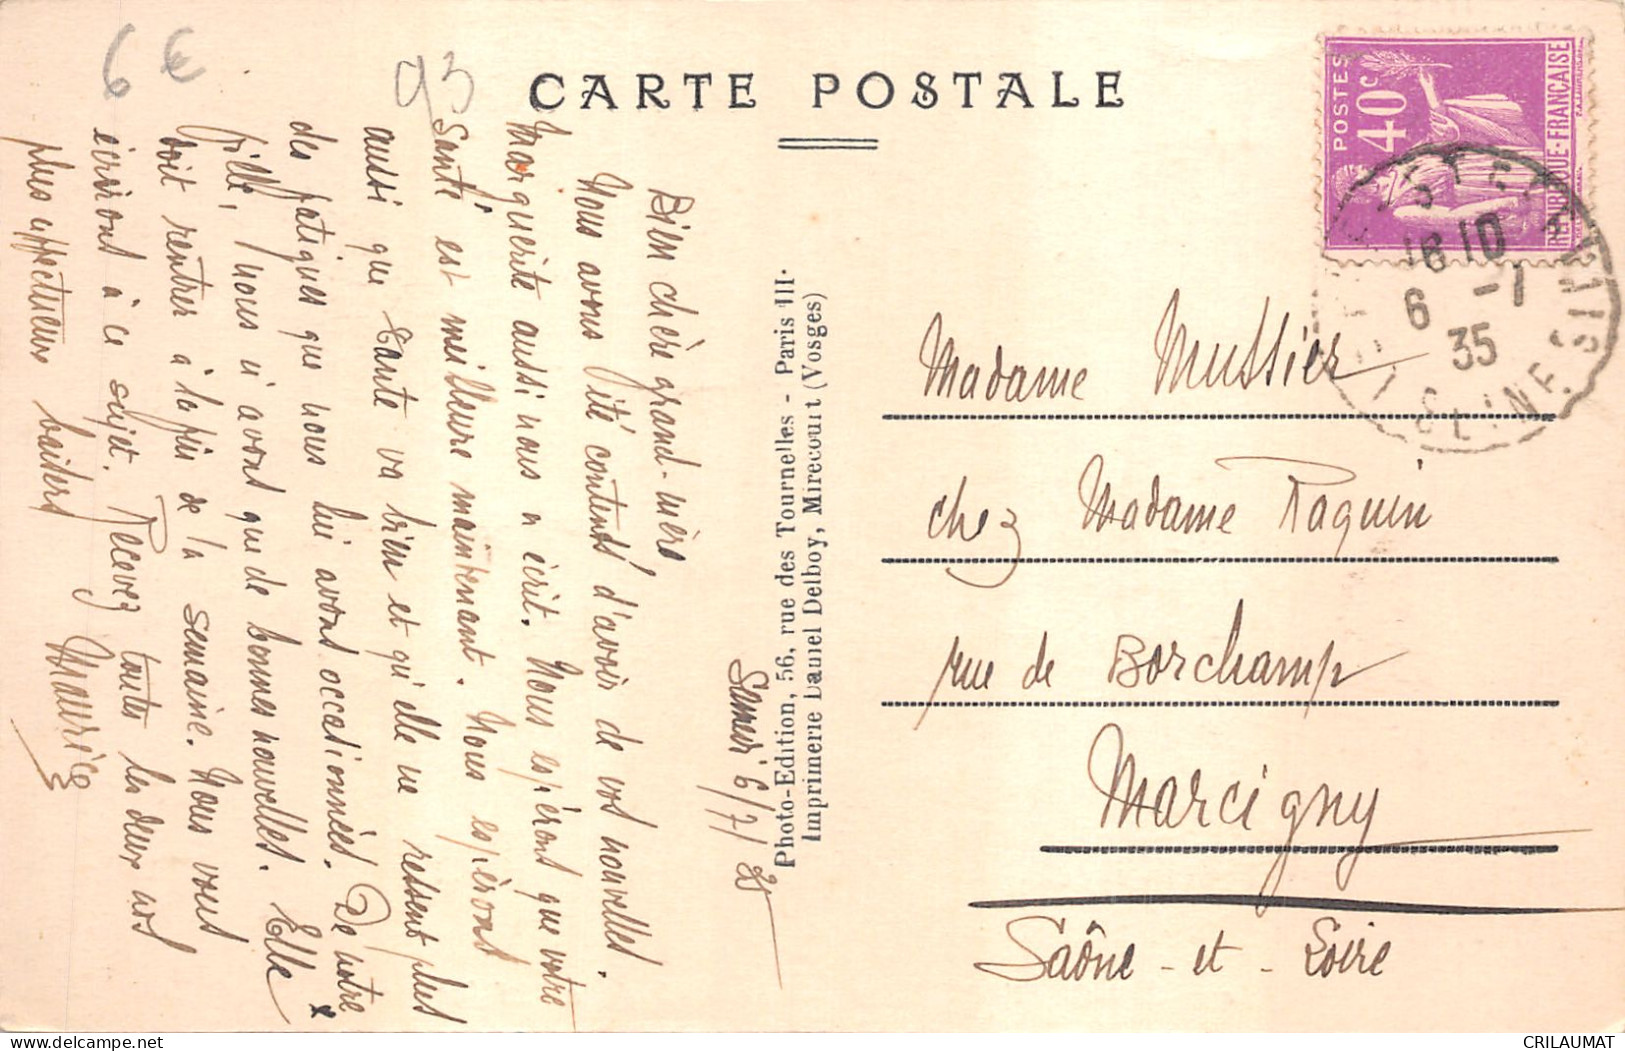 6 €
93
CARTE POSTALE
POSTES
40c
REPUBLIQUE-FRANÇAISE
16 10
6 -1
35
SEINE
Samedi 6/7/35
Bien chère grand-mère,
Nous avons été contents d'avoir de vos nouvelles.
Marguerite aussi nous a écrit. Nous espérons que votre
Santé est meilleure maintenant. Nous espérons
aussi que Tante va bien et qu'elle ne ressent plus
des fatigues que nous lui avons occasionnées. De notre
fille, nous n'avons que de bonnes nouvelles. Elle
doit rentrer à la fin de la semaine. Nous vous
écrirons à ce sujet. Recevez toutes les deux nos
plus affectueux baisers
Maurice
Photo-Edition, 56, rue des Tournelles - Paris III.
Imprimerie Daniel Delboy, Mirecourt (Vosges)
Madame Mussier
chez Madame Raquin
rue de Borchamp
Marcigny
Saône-et-Loire
CRILAUMAT